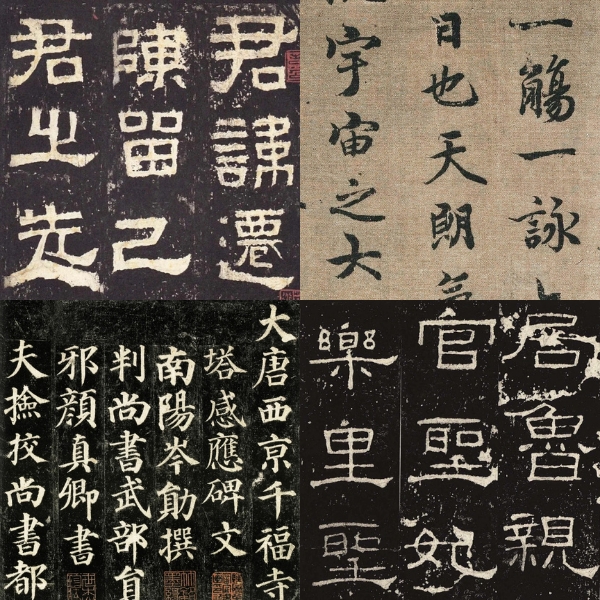 君諱遷
陳留己
君之先
一觴一詠
日也天朗
宇宙之大
大唐西亰千福寺
塔感應碑文
南陽岑勛撰
判尚書武部員
邪顏真卿書
夫撿挍尚書都
居魯親
官聖妃
樂里聖